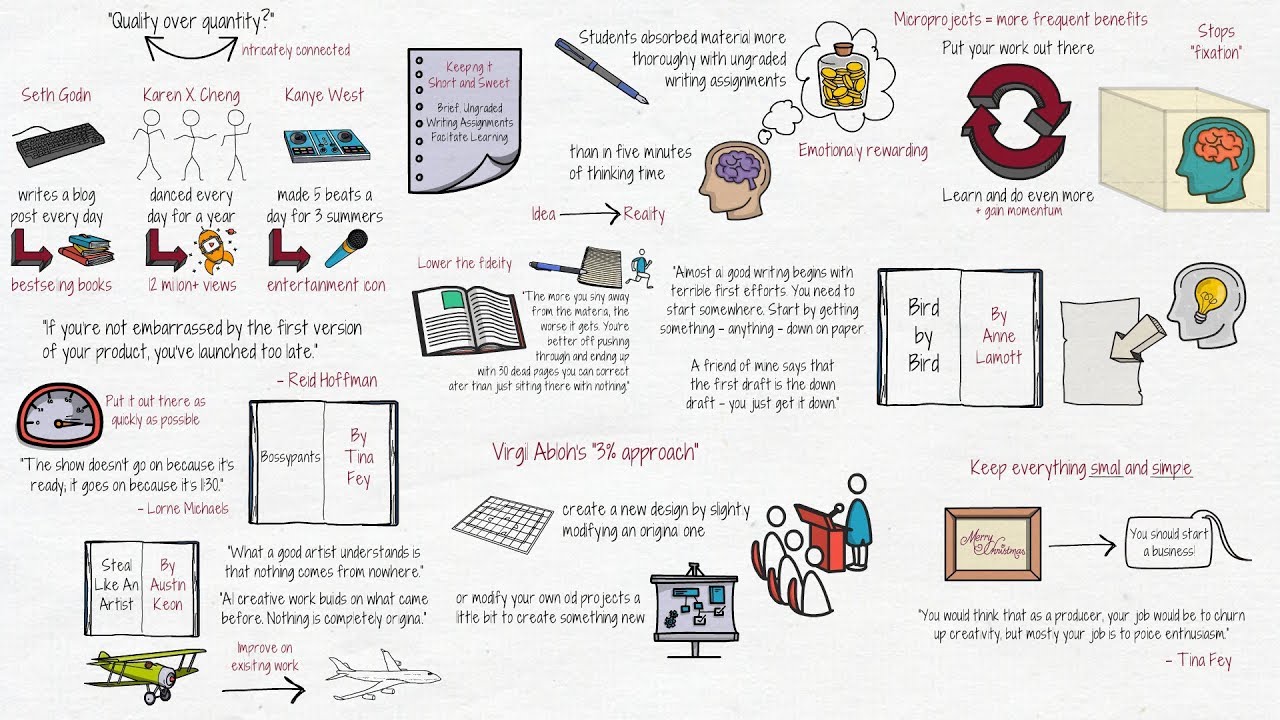 "Quality over quantity?"
Intricately connected
Seth Godn
writes a blog
post every day
bestseling books
Karen X. Cheng
danced every
day for a year
12 milion+ views
Kanye West
made 5 beats a
day for 3 summers
entertainment icon
"If you're not embarrassed by the first version
of your product, you've launched too late."
- Reid Hoffman
Put it out there as
quickly as possible
"The show doesn't go on because it's
ready, it goes on because it's 11:30."
- Lorne Michaels
Bossypants
By
Tina
Fey
Steal
Like An
Artist
By
Austin
Keon
"What a good artist understands is
that nothing comes from nowhere."
"Al creative work buids on what came
before. Nothing is competely origina."
Improve on
exisitng work
Keepng t
Short and Sweet
Brief, Ungraded
Writing Assignments
Facitate Learning
Students absorbed material more
thoroughy with ungraded
writing assignments
than in five minutes
of thinking time
Emotionaly rewarding
Idea
Reality
Lower the fdeity
"The more you shy away
from the materia, the
worse it gets. You're
better off pushing
through and ending up
with 30 dead pages you can correct
ater than just sitting there with nothing."
"Amost al good writng begins with
terrible first efforts. You need to
start somewhere. Start by getting
something - anything - down on paper.
A friend of mine says that
the first draft is the down
draft - you just get it down."
Bird
by
Bird
By
Anne
Lamott
Microprojects = more frequent benefits
Put your work out there
Learn and do even more
+ gan momentum
Stops
"fixation"
Virgil Abloh's "3% approach"
create a new design by slighty
modifying an origina one
or modify your own od projects a
little bit to create something new
Keep everything smal and simpe
Merry
Christmas
You should start
a business!
"You would think that as a producer, your job would be to churn
up creativity, but mosty your job is to poice enthusiasm."
- Tina Fey